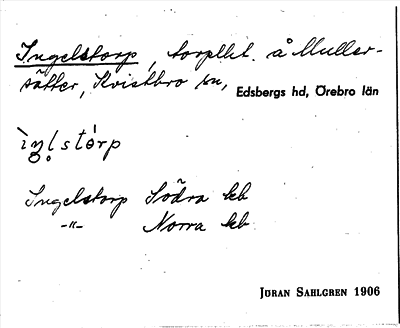 Ingelstorp, torpllht. å Muller-
sätter, Kvistbro sn, Edsbergs hd, Örebro län
ìŋ̥l̥stórp
Ingelstorp Södra leb
-"- Norra leb
JÖRAN SAHLGREN 1906